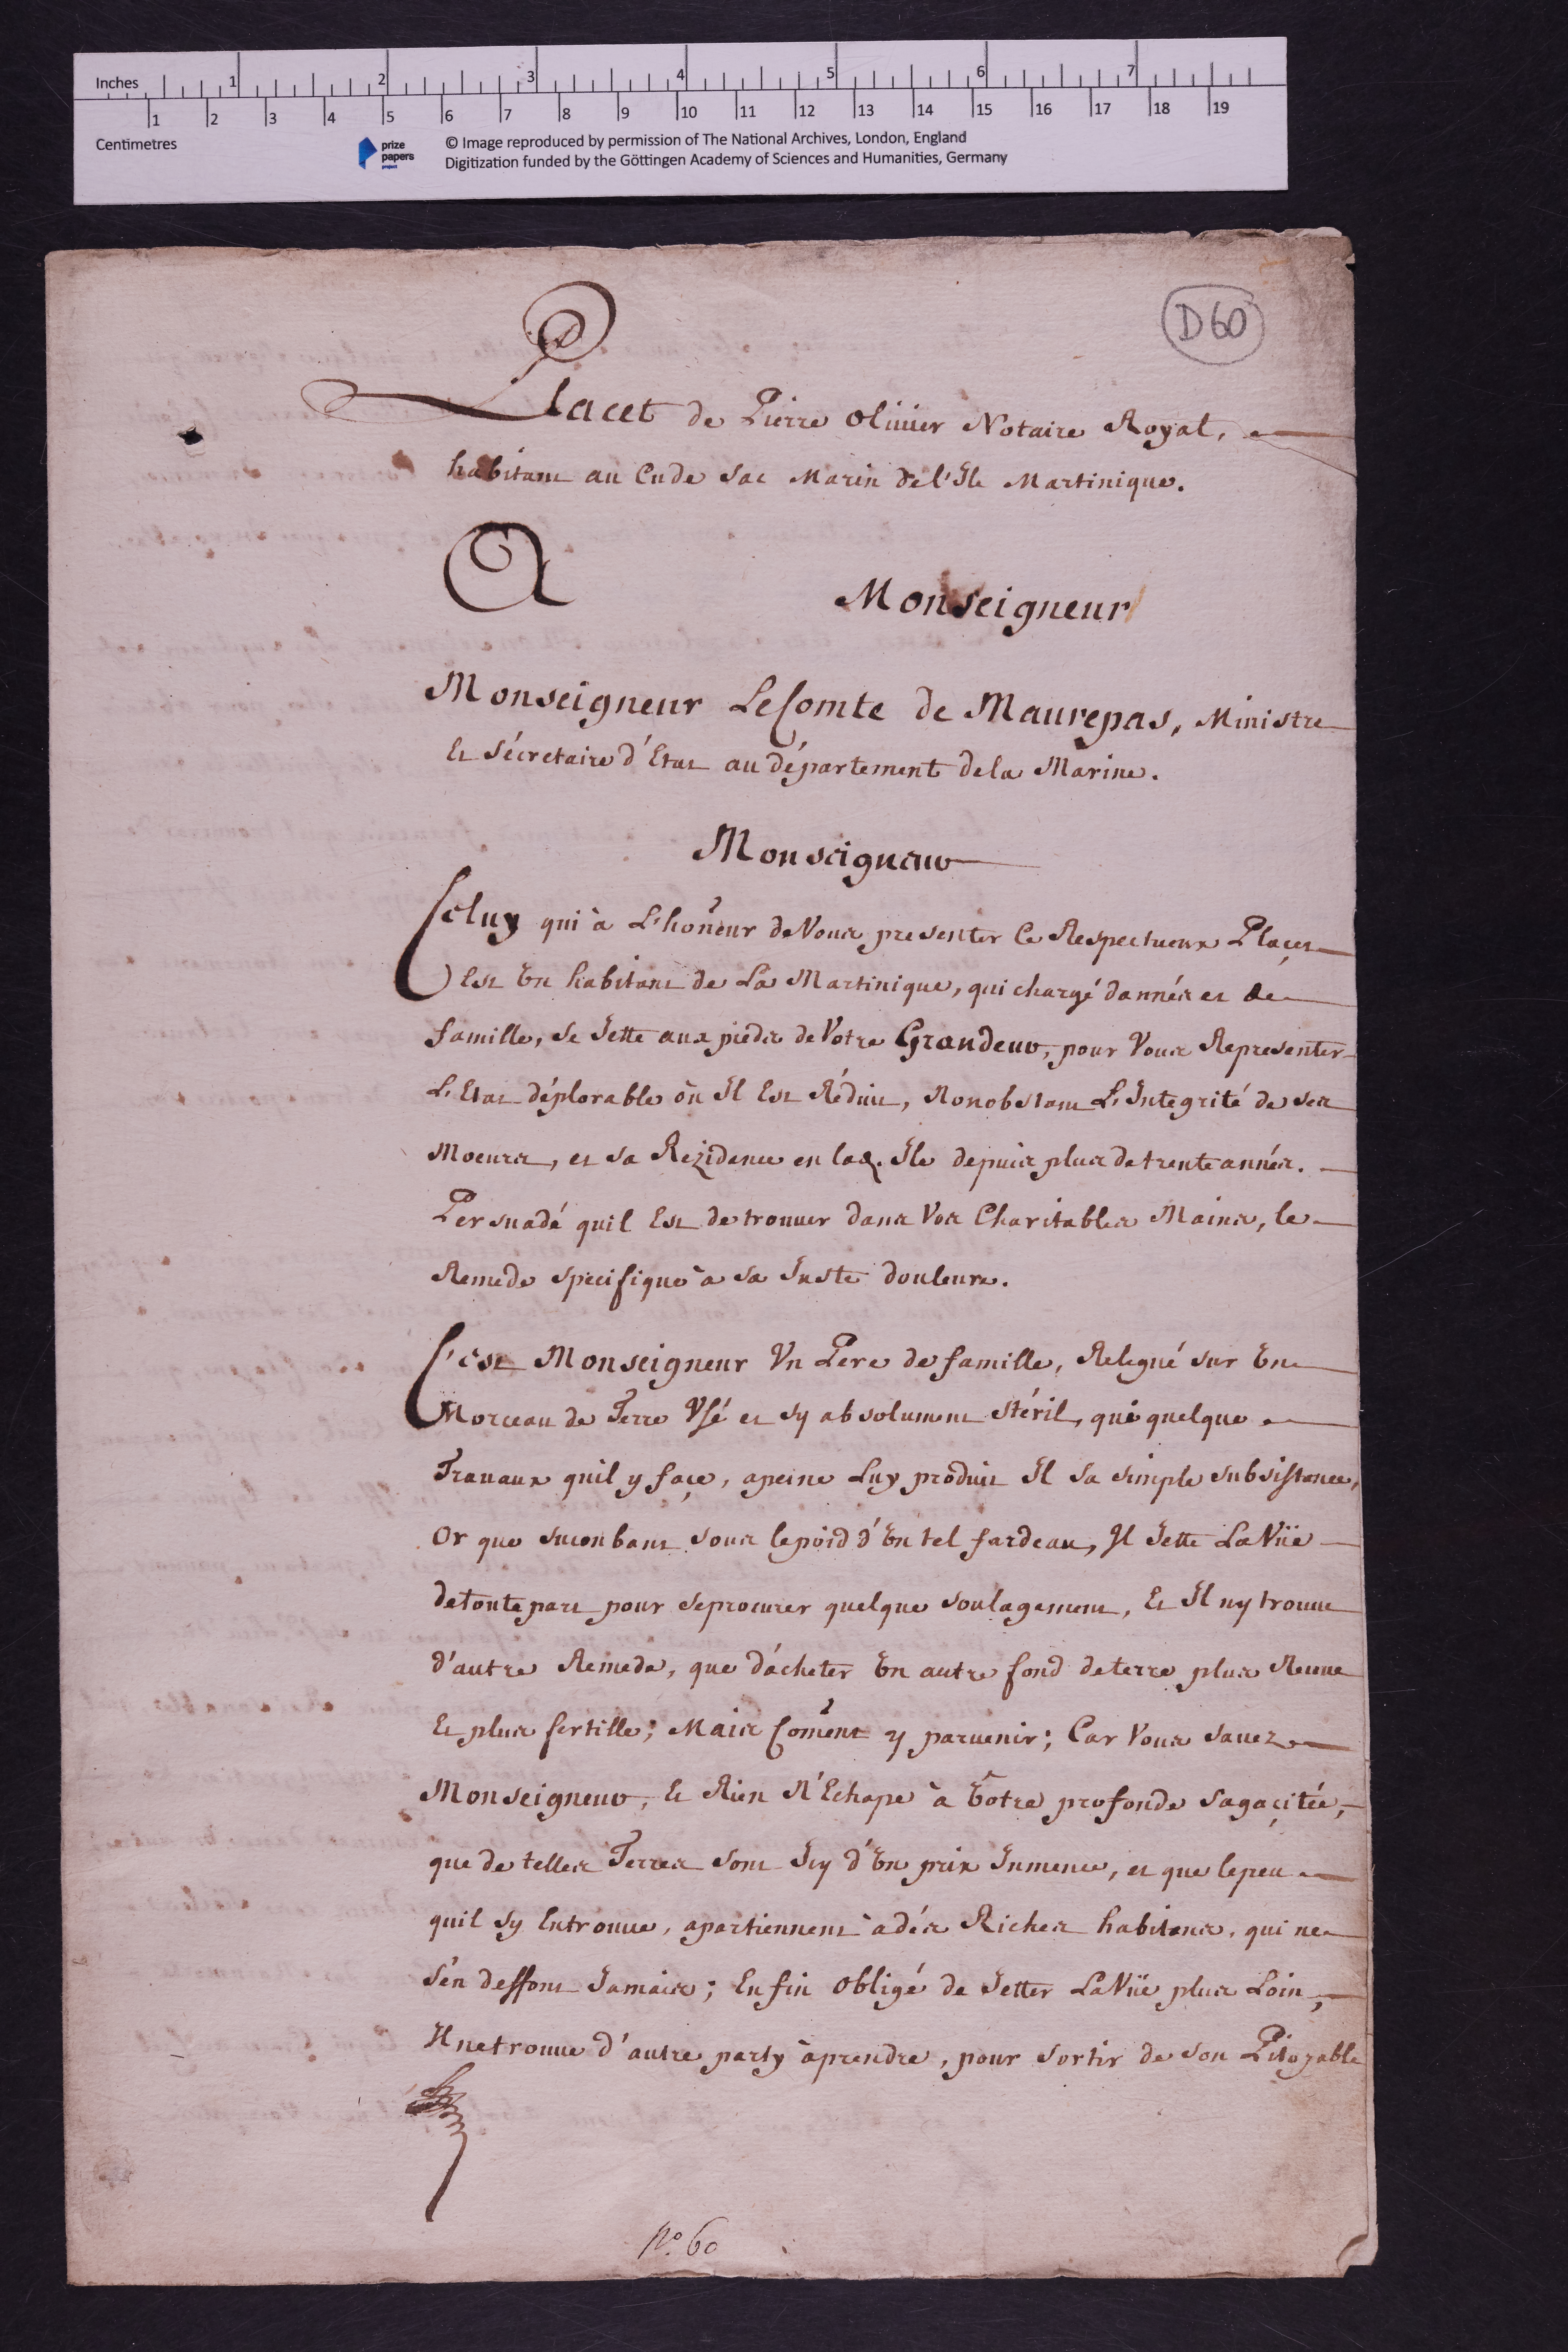 Inches 1 2 3 4 5 6 7
1 2 3 4 5 6 7 8 9 10 11 12 13 14 15 16 17 18 19
Centimetres
prize
papers
© Image reproduced by permission of The National Archives, London, England
Digitization funded by the Göttingen Academy of Sciences and Humanities, Germany
D60
Placet de Pierre Olivier Notaire Royal,
habitant au Cu de Sac Marin de l'Ile Martinique.
A Monseigneur
Monseigneur Le Comte de Maurepas, Ministre
Et Sécretaire d'Etat au département dela Marine.
Monseigneur
Celuy qui à L'honneur de Vous presenter Ce Respectueux Plaçet
Est Un habitant de La Martinique, qui chargé dannés et de
famille, se Jette aux pieds de Votre Grandeur, pour Vous Representer
L'Etat déplorable où Il Est Réduit, Nonobstant L'Integrité de ses
Moeurs, et sa Rezidence en lad. Ile depuis plus de trente annés.
Persuadé quil Est de trouver dans Vos Charitables Mains, le
Remede specifique à sa Juste douleure.
C'est Monseigneur Un Pere de famille, Relegué sur Un
Morceau de Terre Usé et sy absolument stéril, que quelque
Travaux quil y façe, apeine Luy produit Il sa simple subsistance,
Or que sucombant sous le poid d'Un tel fardeau, Il Jette La Vüe
de toute part pour se procurer quelque soulagement, Et Il ny trouve
d'autre Remede, que d'acheter Un autre fond de terre plus Neuve
Et plus fertille; Mais Coment y parvenir; Car Vous savez
Monseigneur, Et Rien N'Echape à Votre profonde sagaçitée,
que de telles Terres sont Icy d'Un prix Inmence, et que le peu
quil sy Entrouve, apartiennent à dés Riches habitans, qui ne
s'en deffont Jamais; Enfin obligé de Jetter La Vüe plus Loin,
Il ne trouve d'autre party à prendre, pour sortir de son Pitoyable
No. 60